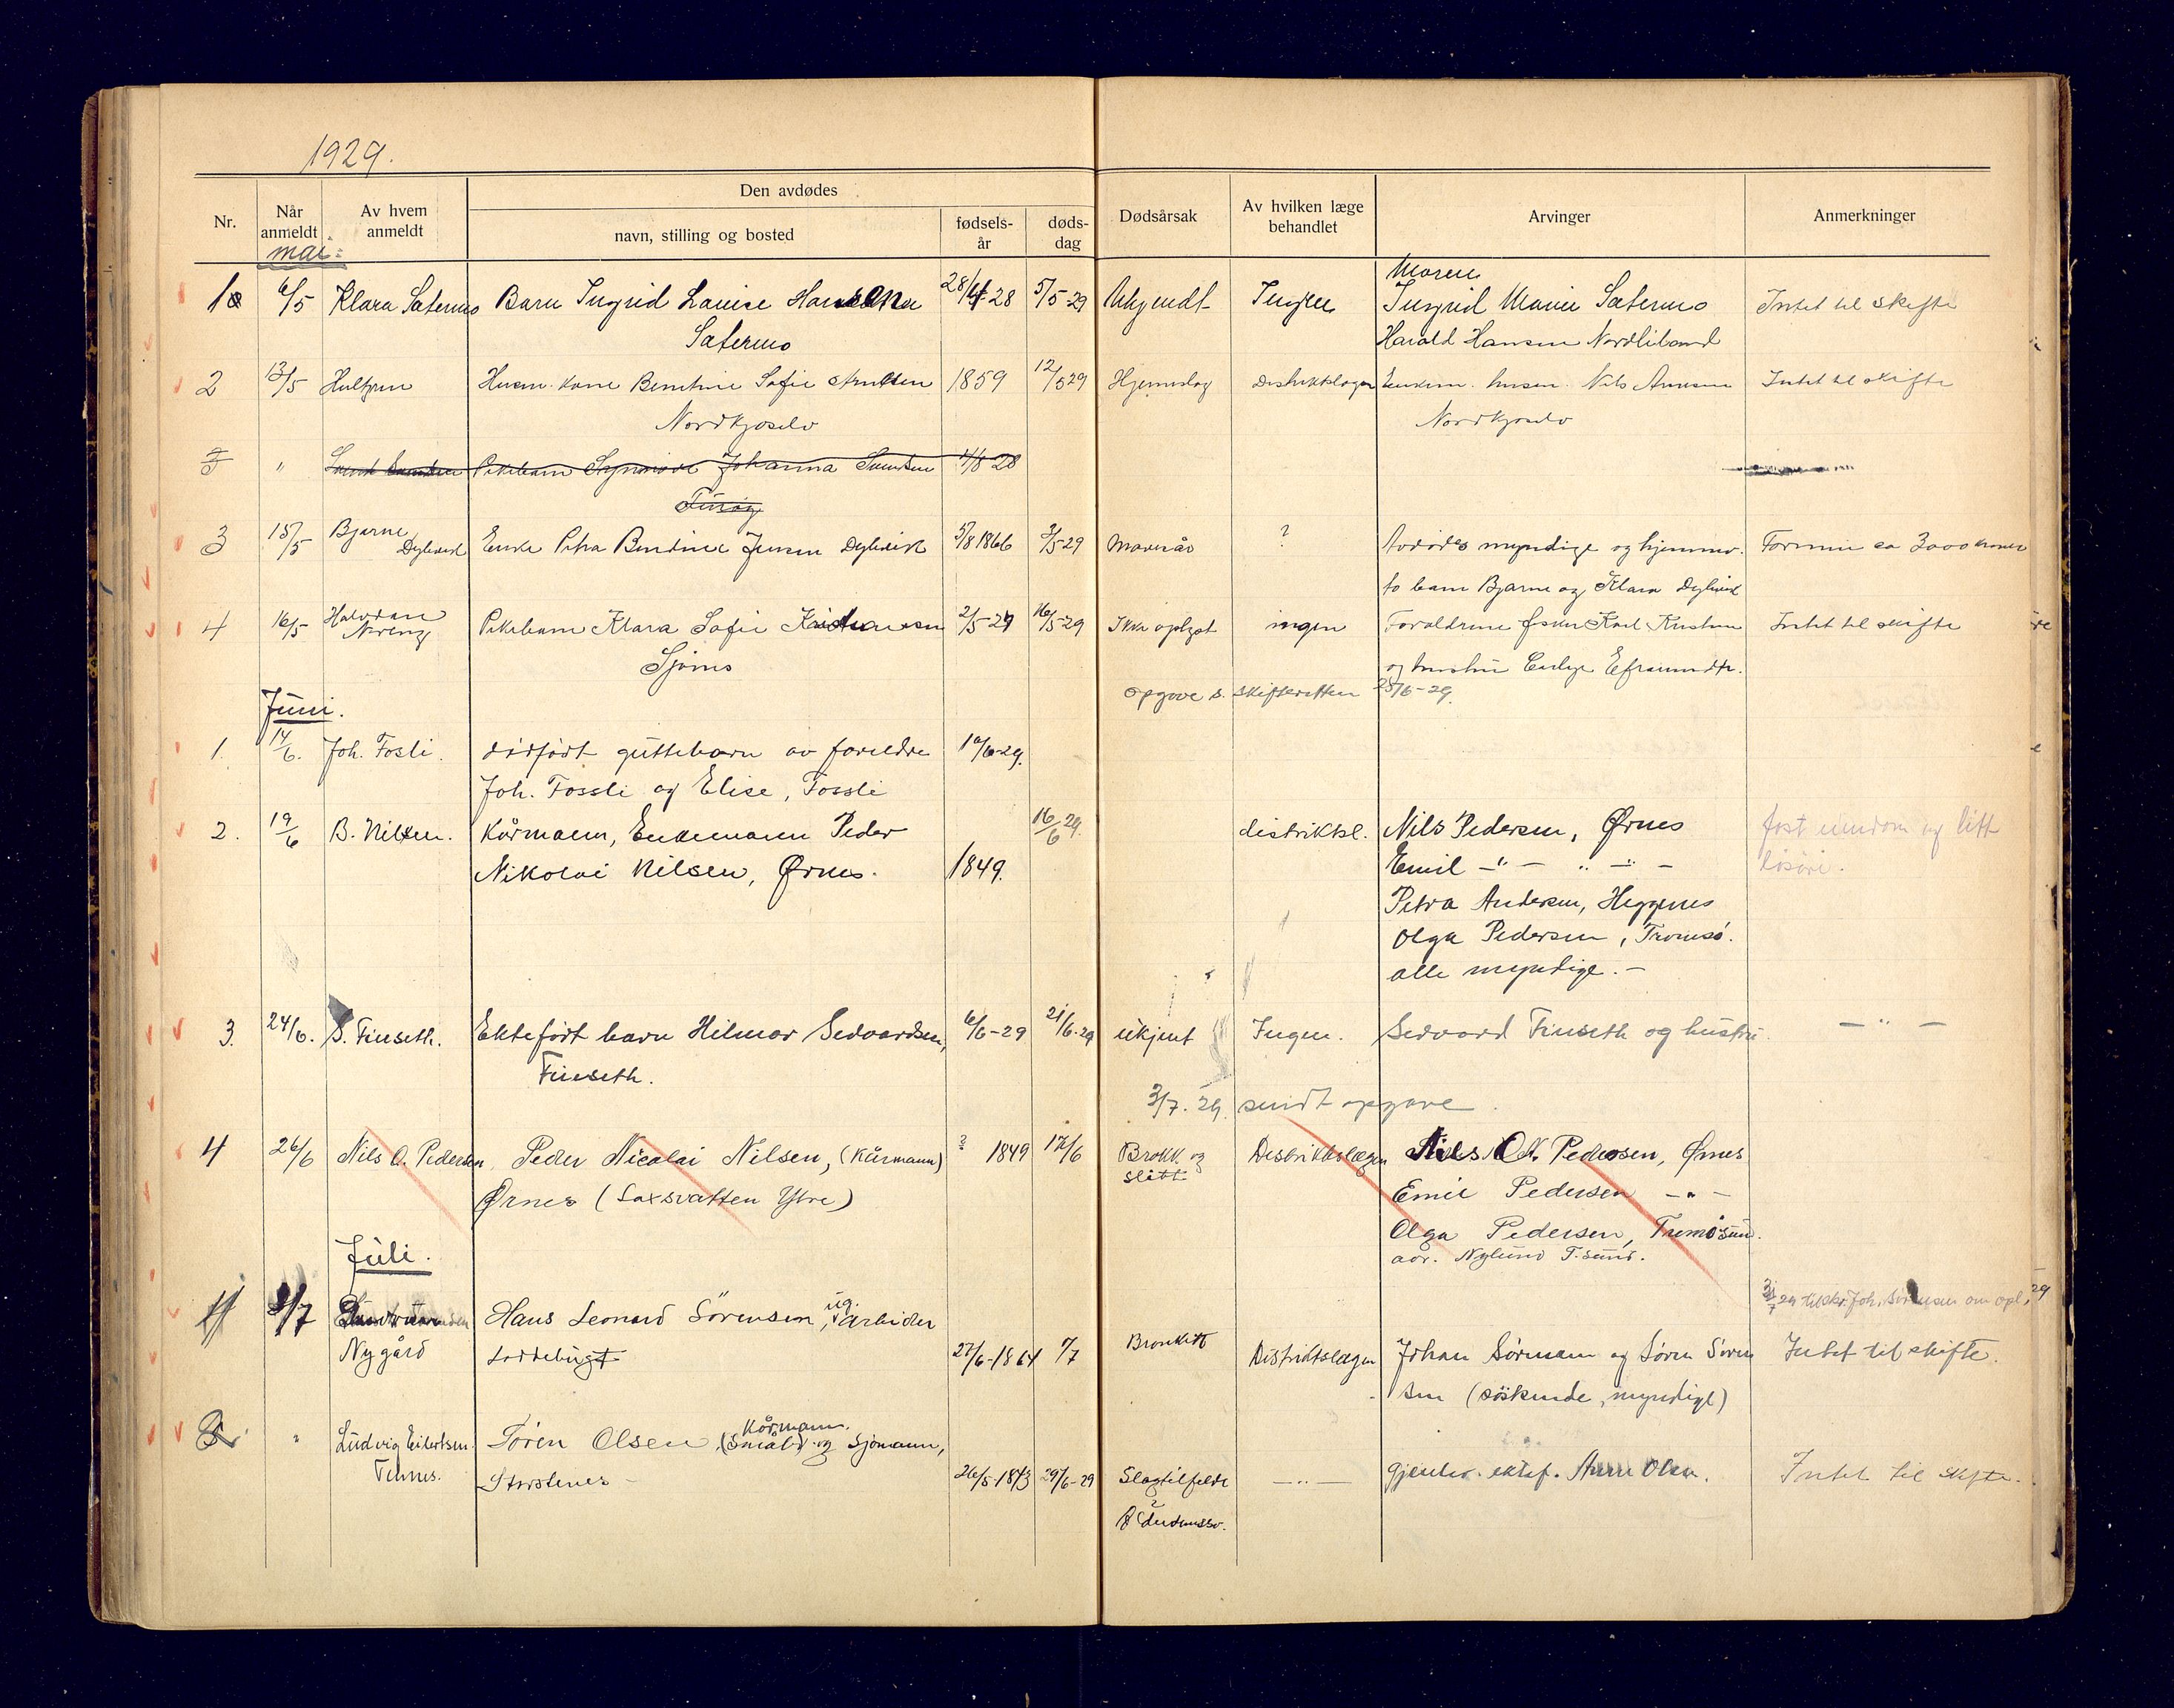 1929.
Nr.
Når anmeldt
Av hvem anmeldt
Den avdødes
navn, stilling og bosted
fødsels-år
døds-dag
Dødsårsak
Av hvilken læge behandlet
Arvinger
Anmerkninger
mai:
Moren
1 6/5 Klara Sætermo Barn Ingrid Lovise Hansena 28/4 28 5/5-29 Ukjendt Ingen Ingrid Marie Sætermo Intet til skifte
Sætermo Harald Hansen Nordlibotnd
2 13/5 Hultgren Husm. kone Berntine Sofie Arntsen 1859 12/5 29 Hjerneslag Distriktslægen Enkem. husm. Nils Arnesen Intet til skifte
Nordkjoselv Nordkjoselv
3 " Pikebarn Johanna 4/8 28
3 15/5 Bjarne Enke Petra Berdine Jensen Dybvik 5/8 1866 3/5-29 Mavesår ? Avdødes myndige og hjemmev. Formue ca 3000 kroner
Dybvik to barn Bjarne og Klara Dybvik
4 16/5 Halvdan Noreng Pikebarn Klara Sofie Kristiansen 2/5-29 16/5-29 Ikke oplyst ingen Forældrene fisker Karl Kristian Intet til skifte
Sjøvns og hustru
Opgave s. skifteretten 25/6-29.
Juni.
1. 14/6. Joh. Fosli. dødfødt guttebarn av foreldre 10/6-29.
Joh. Fossli og Elise, Fossli
2. 19/6 B. Nilsen. Kårmann, Enkemann Peder 16/6 29. distriktsl. Nils Pedersen, Ørnes fast eiendom og litt
Nikolai Nilsen, Ørnes. 1849. Emil - " - " - " - løsøre.
Petra Andersen, Heggenes
Olga Pedersen, Tromsö.
alle myndige. -
3. 24/6. S. Finseth. Ektefött barn Hilmar Sedvardsen, 6/6-29 21/6-29 ukjent Ingen. Sedvard Finseth og hustru. - " -
Finseth.
3/7. 29. sendt opgave.
4 26/6 Nils O. Pedersen Peder Nicolai Nilsen, (Kårmann) ? 1849 17/6 Brokk og Distriktslægen Nils O. N. Pedersen, Ørnes
Ørnes (Laxsvatten Ytre) slitt Emil Pedersen - " -
Olga Pedersen, Tromösund.
adr. Nylund T.sund.
Juli.
3/7 29 tilskr. Joh. Sörensen om opl. 29
1 9/7 Hans Leonard Sörensen, ug. arbeider
Nygård Loddebugt 27/6-1864 7/7 Bronkitt Distriktslægen Johan Sörensen og Sören Sören Intet til skifte.
sen (söskende, myndige)
2 " Ludvig Eilertsen Sören Olsen, (Småbr. og Sjömann, Kårmann.
Storstenes 26/5-1843 29/6-29 Slagtilfelde - " - gjenlev. ektef. Anne Olsen. Intet til skifte.